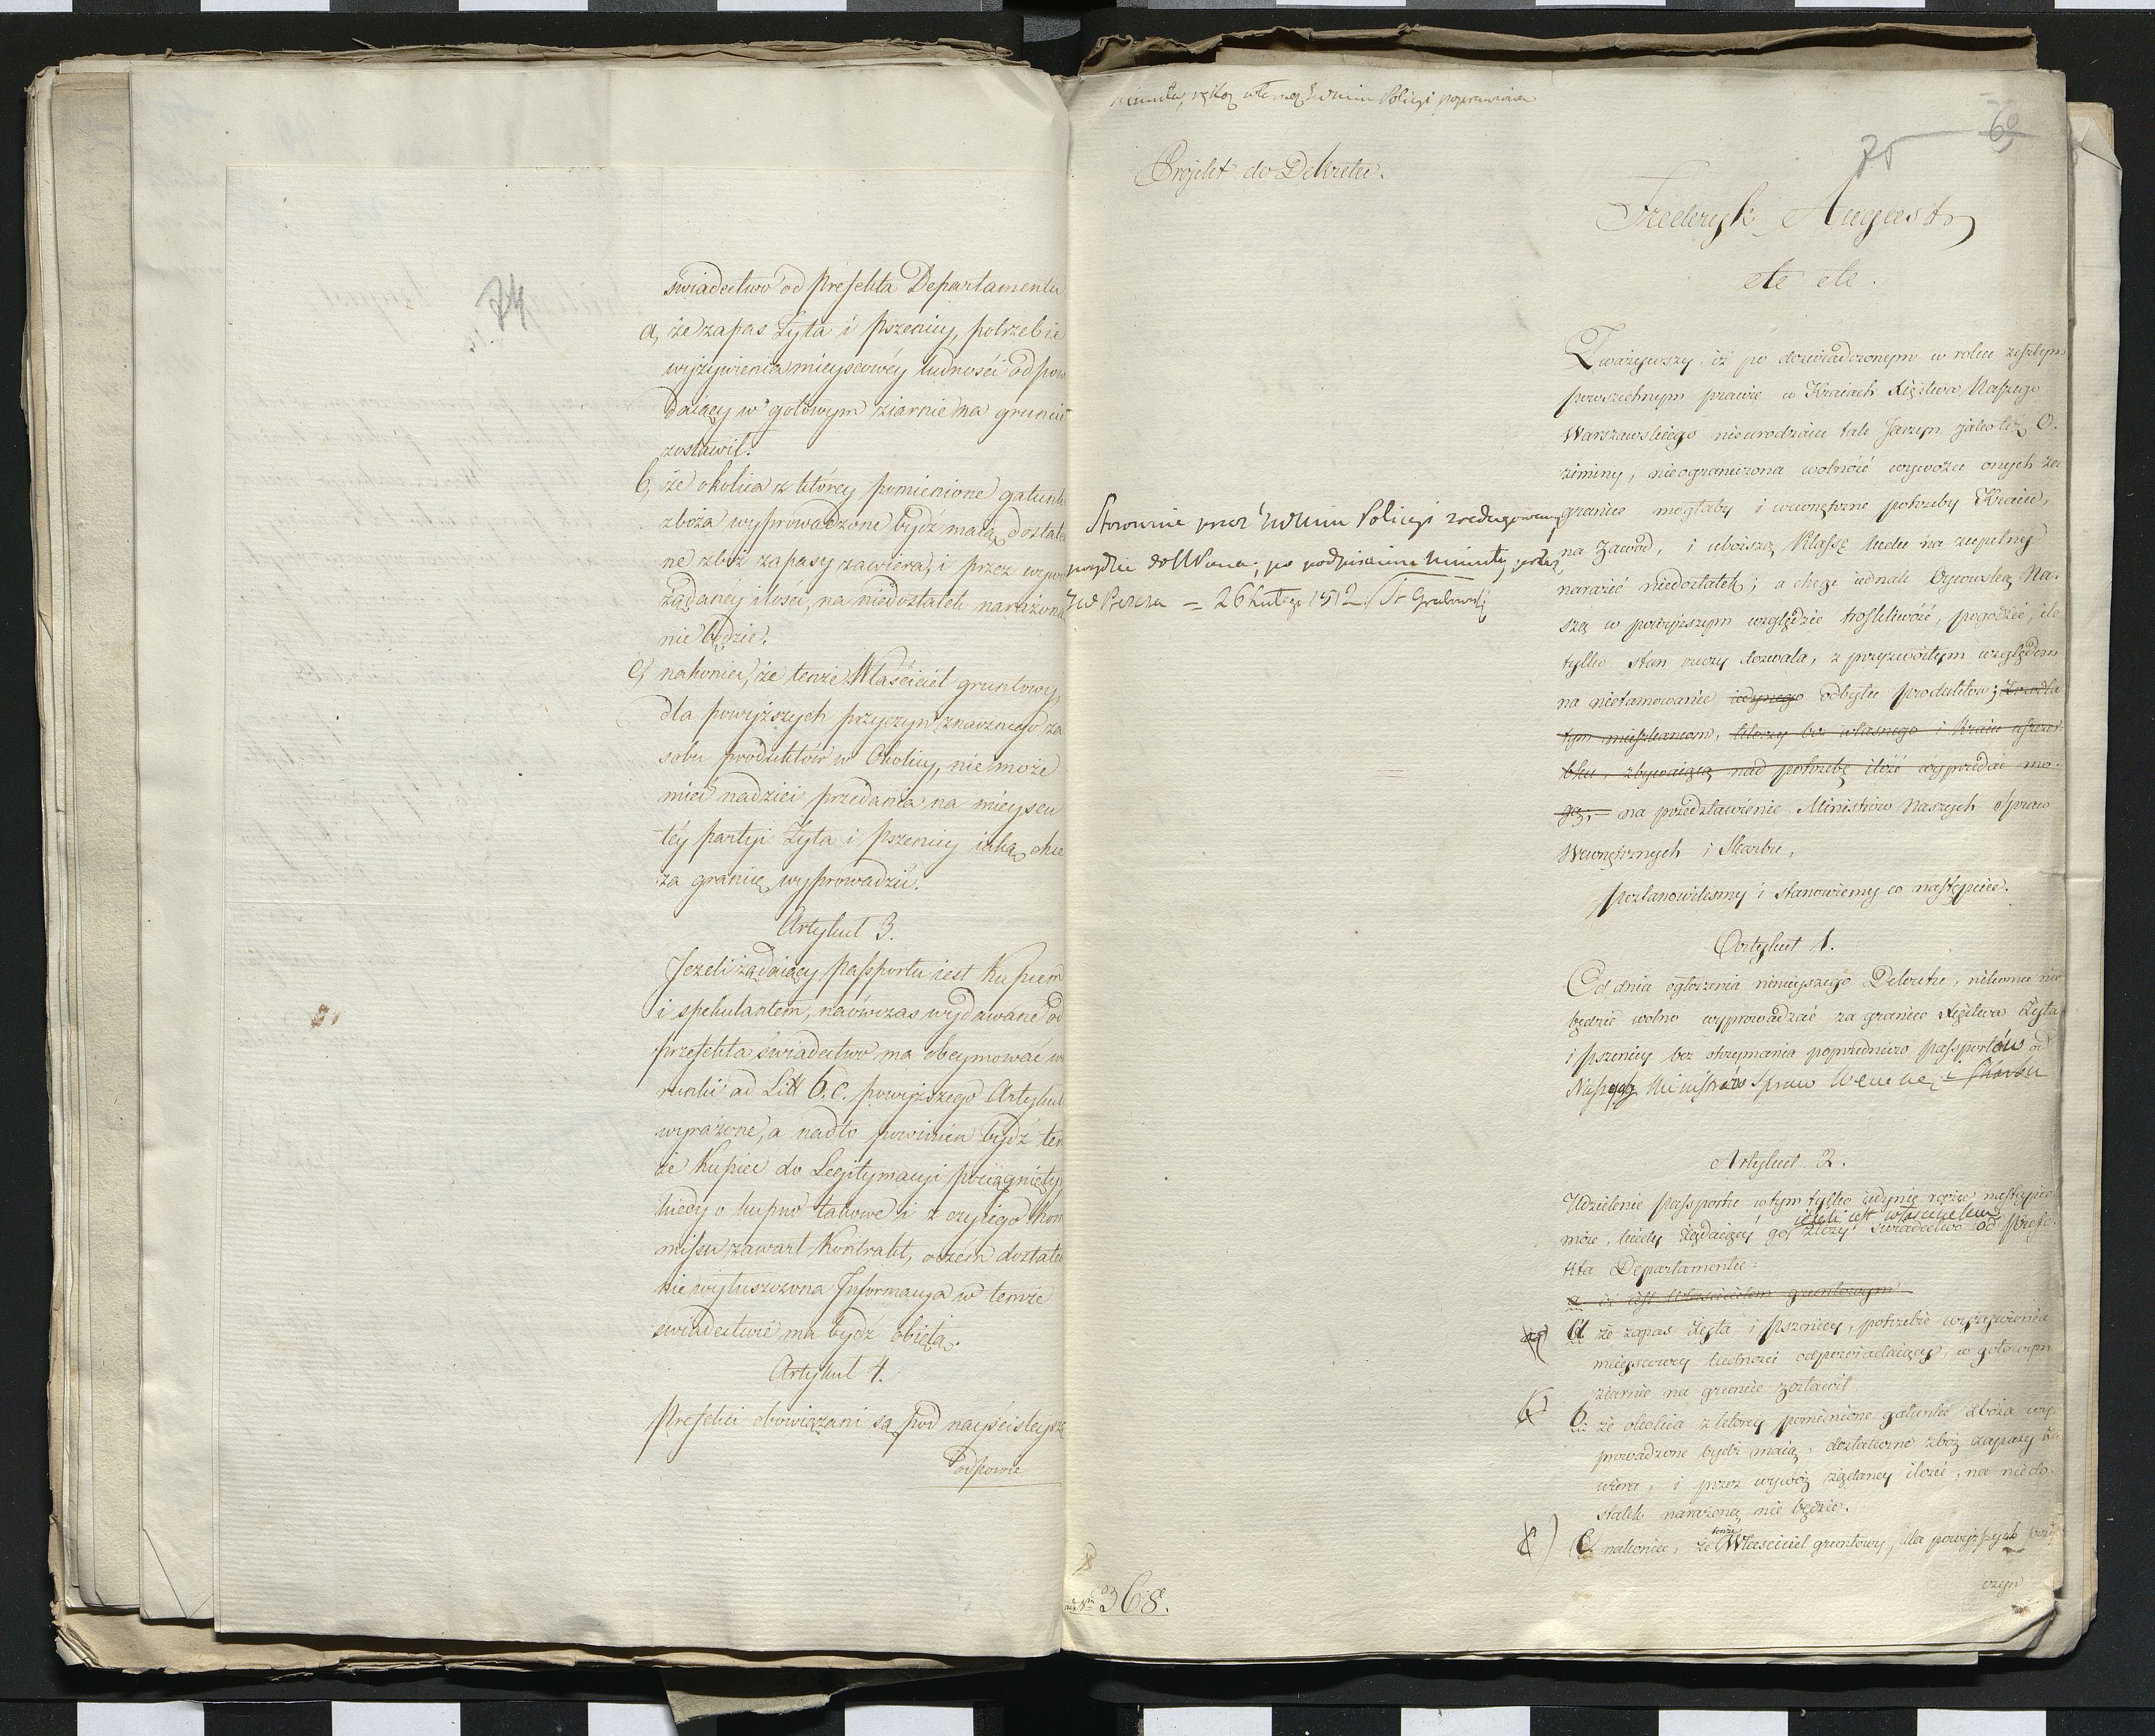 74
świadectwo od Prefekta Departamentu
a, że zapas Żyta i Pszenicy, potrzebie
wyżywienia mieyscowéy ludności odpow
daiący w gotowym ziarnie na gruncie
zostawił.
b, że okolica z którey pomienione gatunki
zboża wyprowadzone bydź maią, dostate
ne zbóż zapasy zawiera, i przez wywó
żądanéy ilości, na niedostatek narażona
nie będzie.
c, nakoniec, że tenże Właściciel gruntowy,
dla powyższych przyczyn znacznego za
sobu produktów w Okolicy, nie może
mieć nadziei przedania na mieyscu
téy partyi Żyta i Pszenicy iaką chce
za granicę wyprowadzić.
Artykuł 3.
Jeżeli żądaiący Passportu iest Kupcem
i spekulantem, naówczas wydawane od
prefekta świadectwo ma obeymować wa
runki ad Litt b. c. powyższego Artykuł
wyrażone, a nadto powinien bydź ten
że Kupiec do Legitymacyi pociągnięty
kiedy o kupno takowe i z czyiego Kom
missu zawarł Kontrakt, o czém dostate
nie wyłuszczona Informacya w temże
świadectwie ma bydź obięta.
Artykuł 4.
Prefekci obowiązani są pod nayściśleyszą
odpowie
Minuta, ręką własną JW Min Policyi poprawiona
Projekt do Dekretu.
Stosownie przez JW Min Policyi zredagowany
póydzie do NPana; po podpisaniu minuty przez
JW Prezesa = 26 Lutego 1812. St Grabowski
ad Nm 368.
75
69
Frederyk August
etc etc.
Zważywszy iż po doświadczonym w roku zeszłym
powszechnym prawie w Kraiach Xięztwa Naszego
Warszawskiego nieurodzaiu tak Jarzyn iako też O-
ziminy, nieograniczona wolność wywozu onych za
granice mogłaby i wewnętrzne potrzeby Kraiu,
na zawód, i uboższą Klassę ludu na zupełny
narazić niedostatek; a chcąc iednak Oycowską Na-
szą w powyższym względzie troskliwość, pogodzić, ile
tylko stan rzeczy dozwala, z przyzwoitym względem
na nietamowanie iedynego odbytu produktów;
tym mieszkańcom, którzy bez własnego i Kraiu uszczer-
bku, zbywaiącą nad potrzebę ilość wyprzedać mo-
gą, - na przedstawienie Ministrów Naszych Spraw
Wewnętrznych i Skarbu,
postanowiliśmy i stanowiemy co następuie.
Artykuł 1.
Od dnia ogłoszenia ninieyszego Dekretu, nikomu nie
będzie wolno wyprowadzać za granice Xięztwa Żyta
i Pszenicy bez otrzymania poprzedniczo passportów od
Naszych Ministrów Spraw Wewne. i Skarbu
Artykuł 2.
Udzielenie Passportu w tym tylko iedynie razie nastąpić
może, kiedy żądaiący go, złoży świadectwo od Prefe-
ieżeli iest właścicielem
kta Departamentu:
a iż iest Właścicielem gruntowym
a że zapas Żyta i Pszenicy, potrzebie wyżywienia
mieyscowey ludności odpowiadaiący, w gotowym
ziarnie na gruncie zostawił
b. że okolica z którey pomienione gatunki zboża wy-
prowadzone bydź maią, dostateczne zbóż zapasy za
wiera, i przez wywóz żądaney ilości, na niedo-
statek narażoną nie będzie.
c. nakoniec, że tenże Właściciel gruntowy, dla powyższych przy
czyn